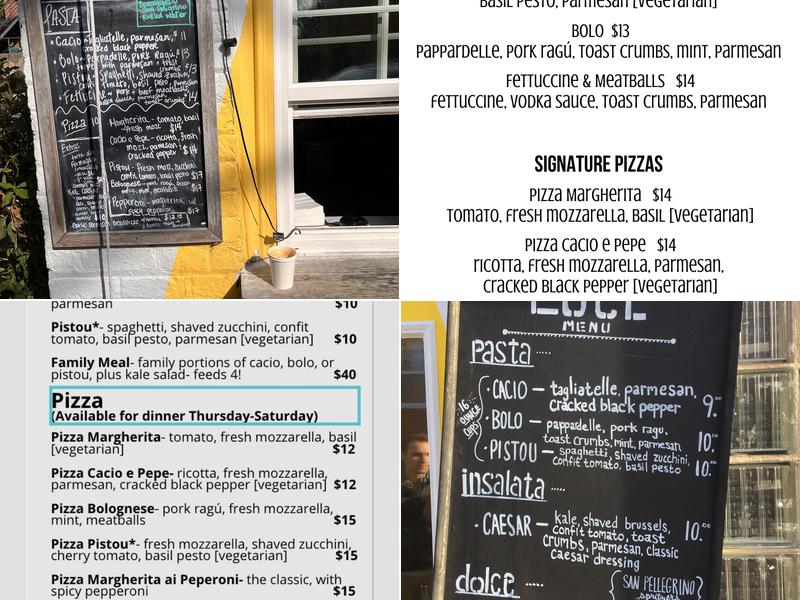 PASTA
Cacio - Tagliatelle, parmesan, $11
cracked black pepper
Pizza
Margherita - tomato, basil
fresh mozz $14
Cacio e Pepe - ricotta, fresh
mozz, parmesan
cracked pepper $14
Pistou - fresh mozz, zucchini
confit tomato, basil pesto $17
Bolognese - pork ragu, fresh
Pepperoni - margherita w/
spicy pepperoni $17
Extras
Basil Pesto, Parmesan [vegetarian]
BOLO $13
Pappardelle, Pork ragú, Toast Crumbs, Mint, Parmesan
Fettuccine & Meatballs $14
Fettuccine, Vodka Sauce, Toast Crumbs, Parmesan
SIGNATURE PIZZAS
Pizza Margherita $14
Tomato, Fresh Mozzarella, Basil [vegetarian]
Pizza Cacio e Pepe $14
ricotta, Fresh Mozzarella, Parmesan,
Cracked Black Pepper [vegetarian]
parmesan $10
Pistou*- spaghetti, shaved zucchini, confit
tomato, basil pesto, parmesan [vegetarian] $10
Family Meal- family portions of cacio, bolo, or
pistou, plus kale salad- feeds 4! $40
Pizza
(Available for dinner Thursday-Saturday)
Pizza Margherita- tomato, fresh mozzarella, basil
[vegetarian] $12
Pizza Cacio e Pepe- ricotta, fresh mozzarella,
parmesan, cracked black pepper [vegetarian] $12
Pizza Bolognese- pork ragú, fresh mozzarella,
mint, meatballs $15
Pizza Pistou*- fresh mozzarella, shaved zucchini,
cherry tomato, basil pesto [vegetarian] $15
Pizza Margherita ai Peperoni- the classic, with
spicy pepperoni $15
MENU
pasta .....
16 OUNCE CUPS
· CACIO — tagliatelle, parmesan,
cracked black pepper 9.00
· BOLO — pappardelle, pork ragu,
toast crumbs, mint, parmesan 10.00
· PISTOU — spaghetti, shaved zucchini,
confit tomato, basil pesto 10.00
insalata .....
· CAESAR — kale, shaved brussels, 10.00
confit tomato, toast
crumbs, parmesan, classic
caesar dressing
dolce .....
SAN PELLEGRINO